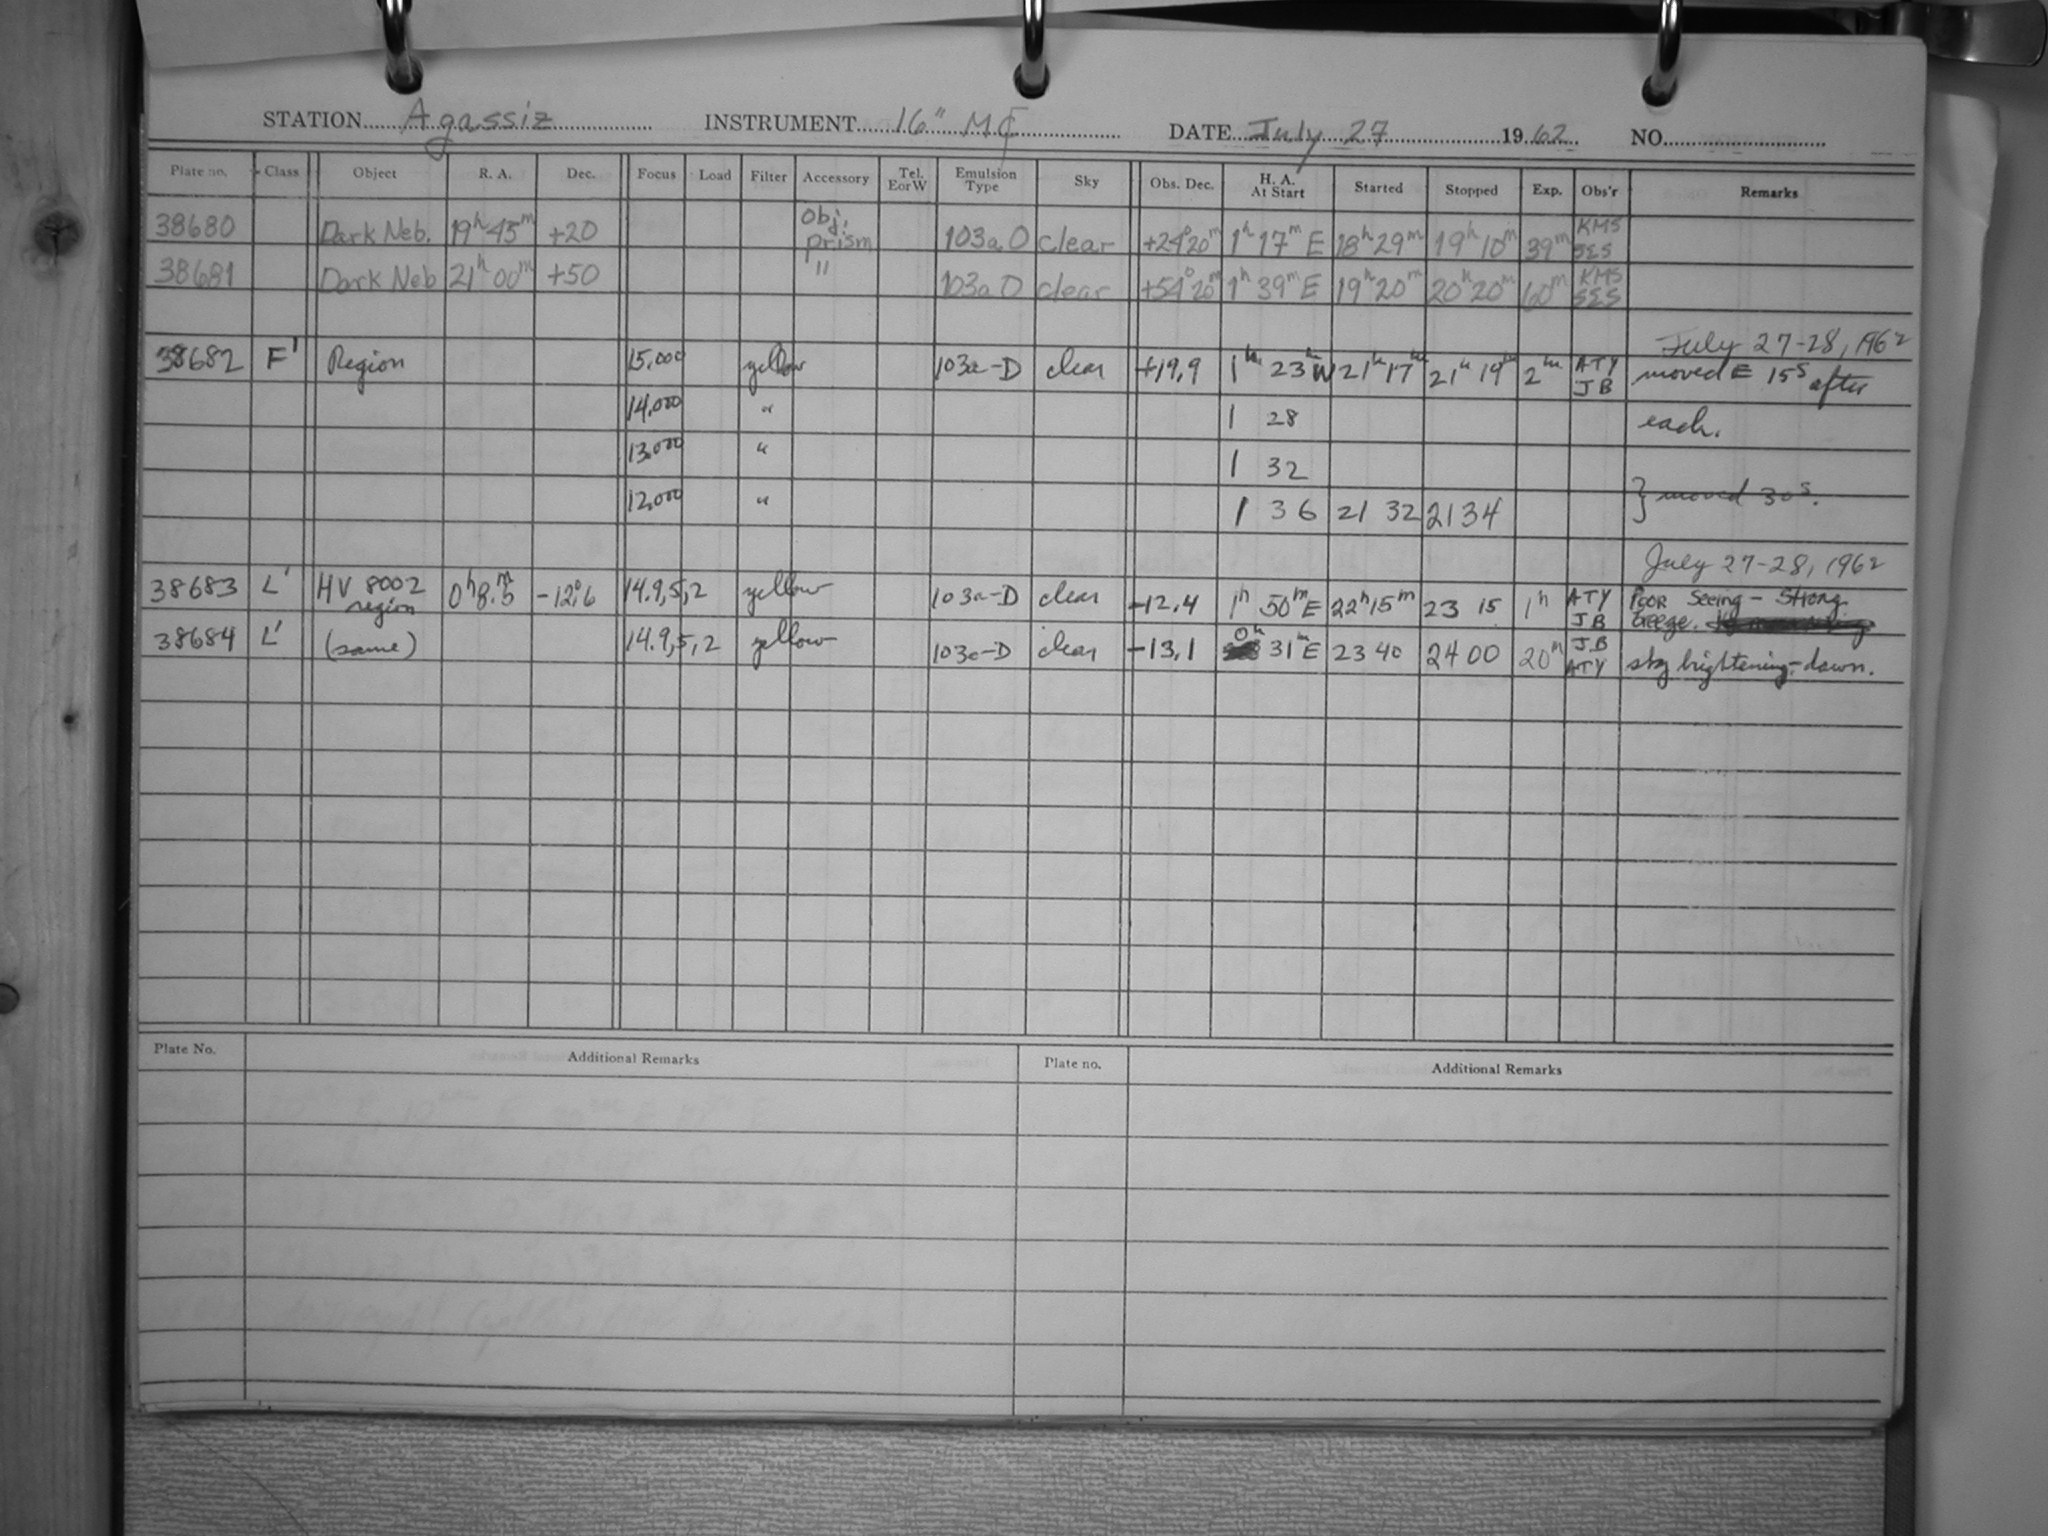 STATION Agassiz INSTRUMENT 16" MC DATE July 27 1962 NO.
Plate no. Class Object R. A. Dec. Focus Load Filter Accessory Tel. E or W Emulsion Type Sky Obs. Dec. H. A. At Start Started Stopped Exp. Obs'r Remarks
38680 Dark Neb. 19h 45m +20 Obj. prism 103a O clear +24° 20m 1h 17m E 18h 29m 19h 10m 39m KMS SES
38681 Dark Neb 21h 00m +50 " 103a O clear +54° 20m 1h 39m E 19h 20m 20h 20m 60m KMS SES
July 27-28, 1962
38682 F' Region 15,000 yellow 103a-D clear +19.9 1h 23m W 21h 17m 21h 19m 2m ATY JB moved E 15s after
14,000 " 1 28 each.
13,000 " 1 32
12,000 " 1 36 21 32 21 34 } moved 30s.
July 27-28, 1962
38683 L' HV 8002 region 0h 8.5m -12°.6 14.9,5,2 yellow 103a-D clear -12.4 1h 50m E 22h 15m 23 15 1h ATY JB Poor Seeing - Strong breeze.
38684 L' (same) 14.9,5,2 yellow 103a-D clear -13.1 0h 31m E 23 40 24 00 20m JB ATY sky brightening-dawn.
Plate No. Additional Remarks Plate no. Additional Remarks